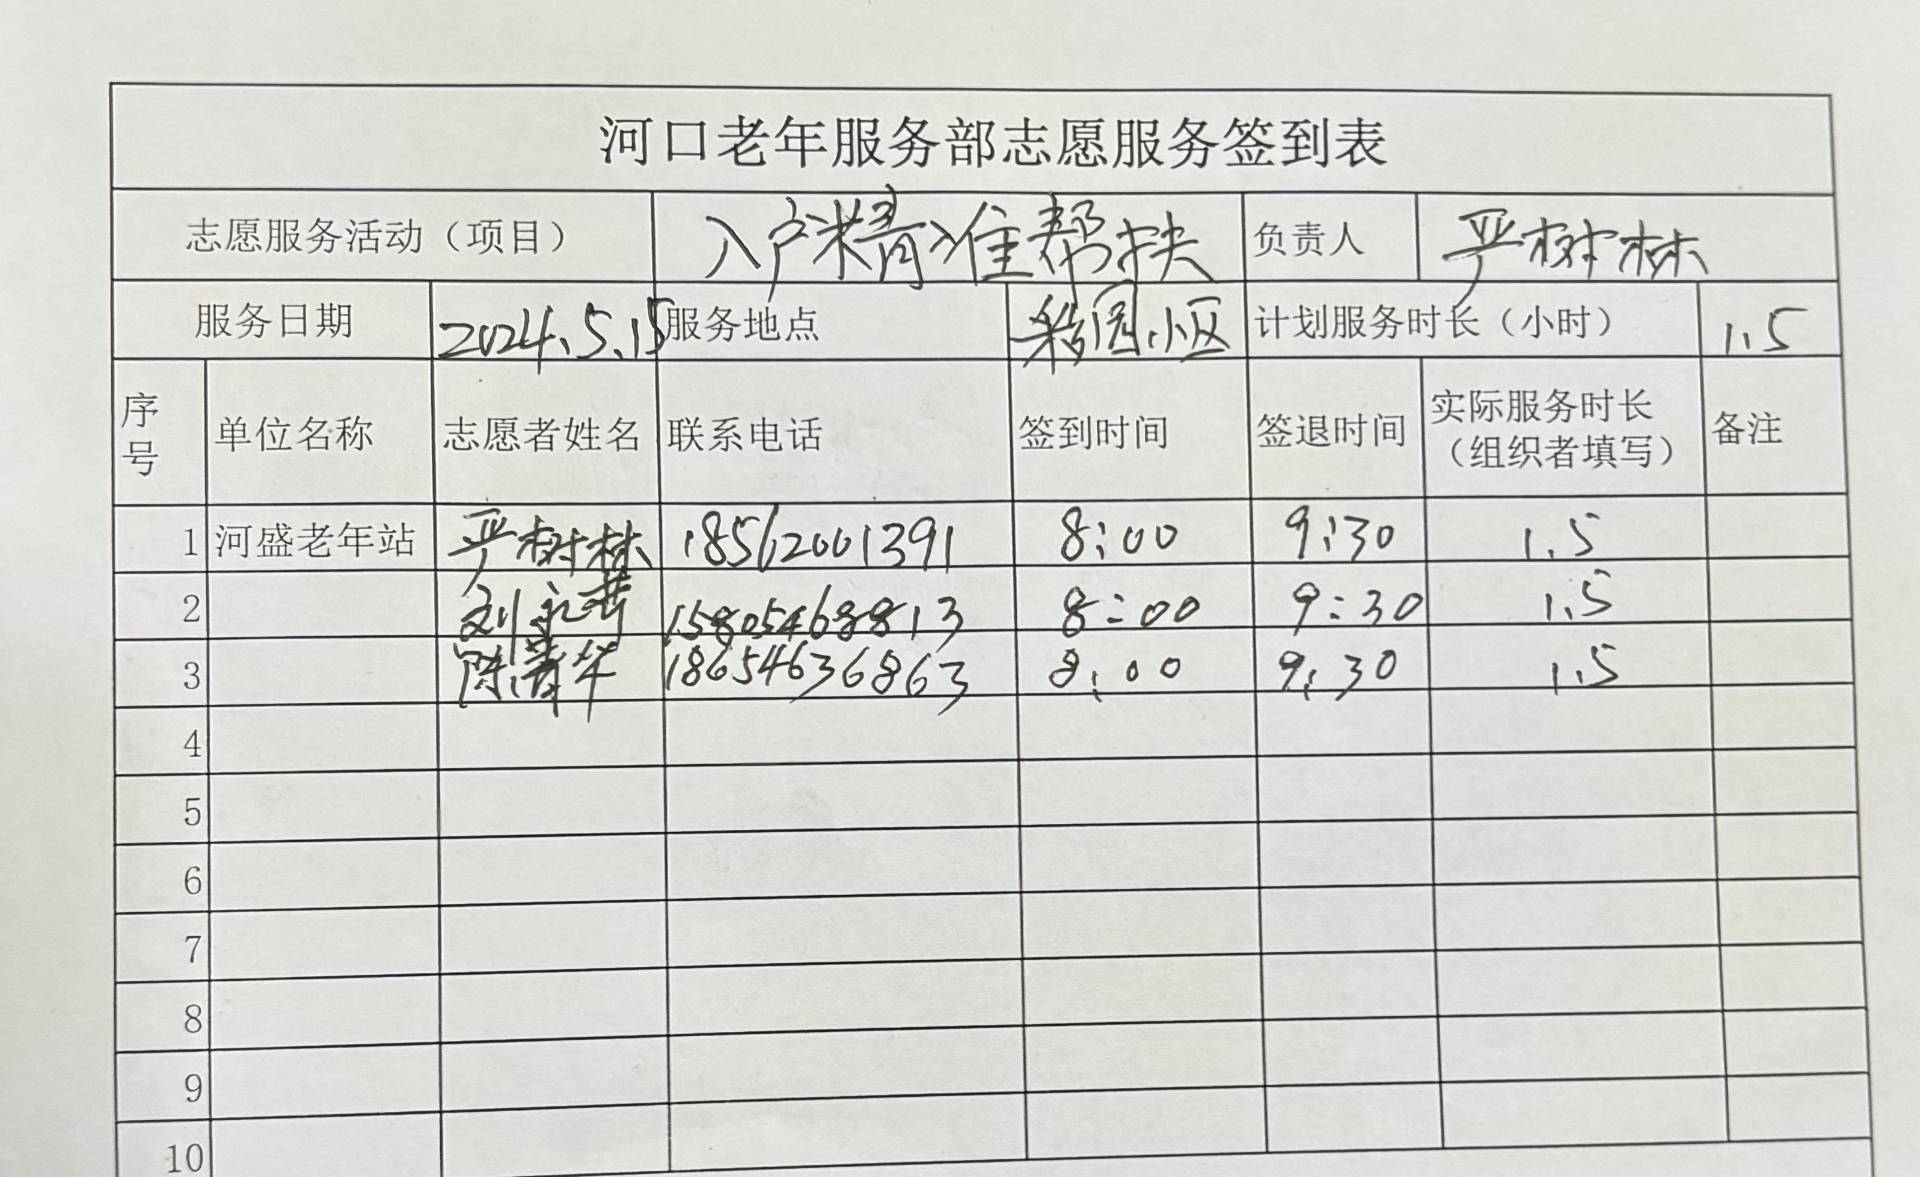 河口老年服务部志愿服务签到表
志愿服务活动（项目） 入户精准帮扶 负责人 严树林
服务日期 2024.5.15 服务地点 小区 计划服务时长（小时） 1.5
序号 单位名称 志愿者姓名 联系电话 签到时间 签退时间 实际服务时长（组织者填写） 备注
1 河盛老年站 严树林 18562001391 8:00 9:30 1.5
2 刘 15805468813 8:00 9:30 1.5
3 陈青华 18654636863 8:00 9:30 1.5
4
5
6
7
8
9
10